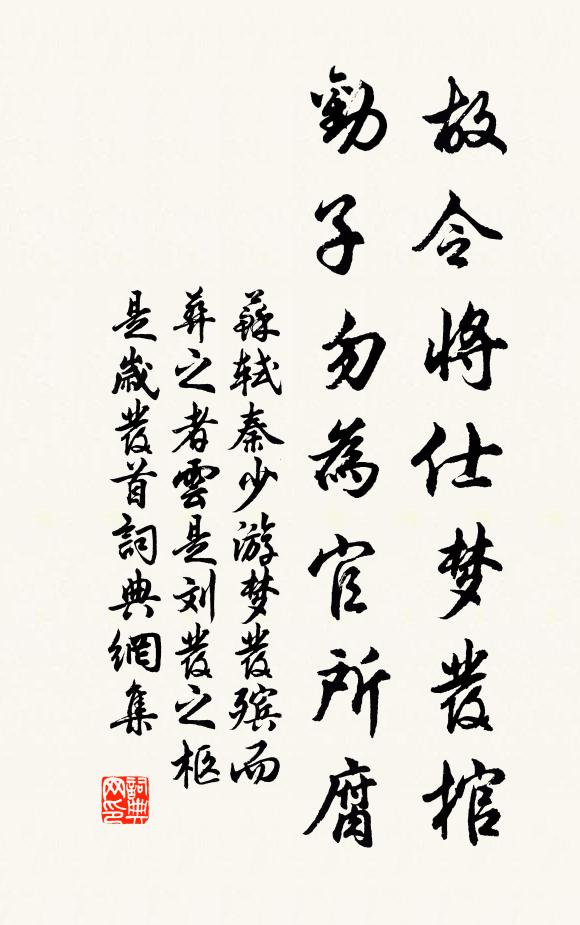 故令將仕梦發棺
勸子勿為官所腐
蘇軾秦少游梦發殡而
葬之者雲是刘發之柩
是歲發首詞典網集
詞典网印